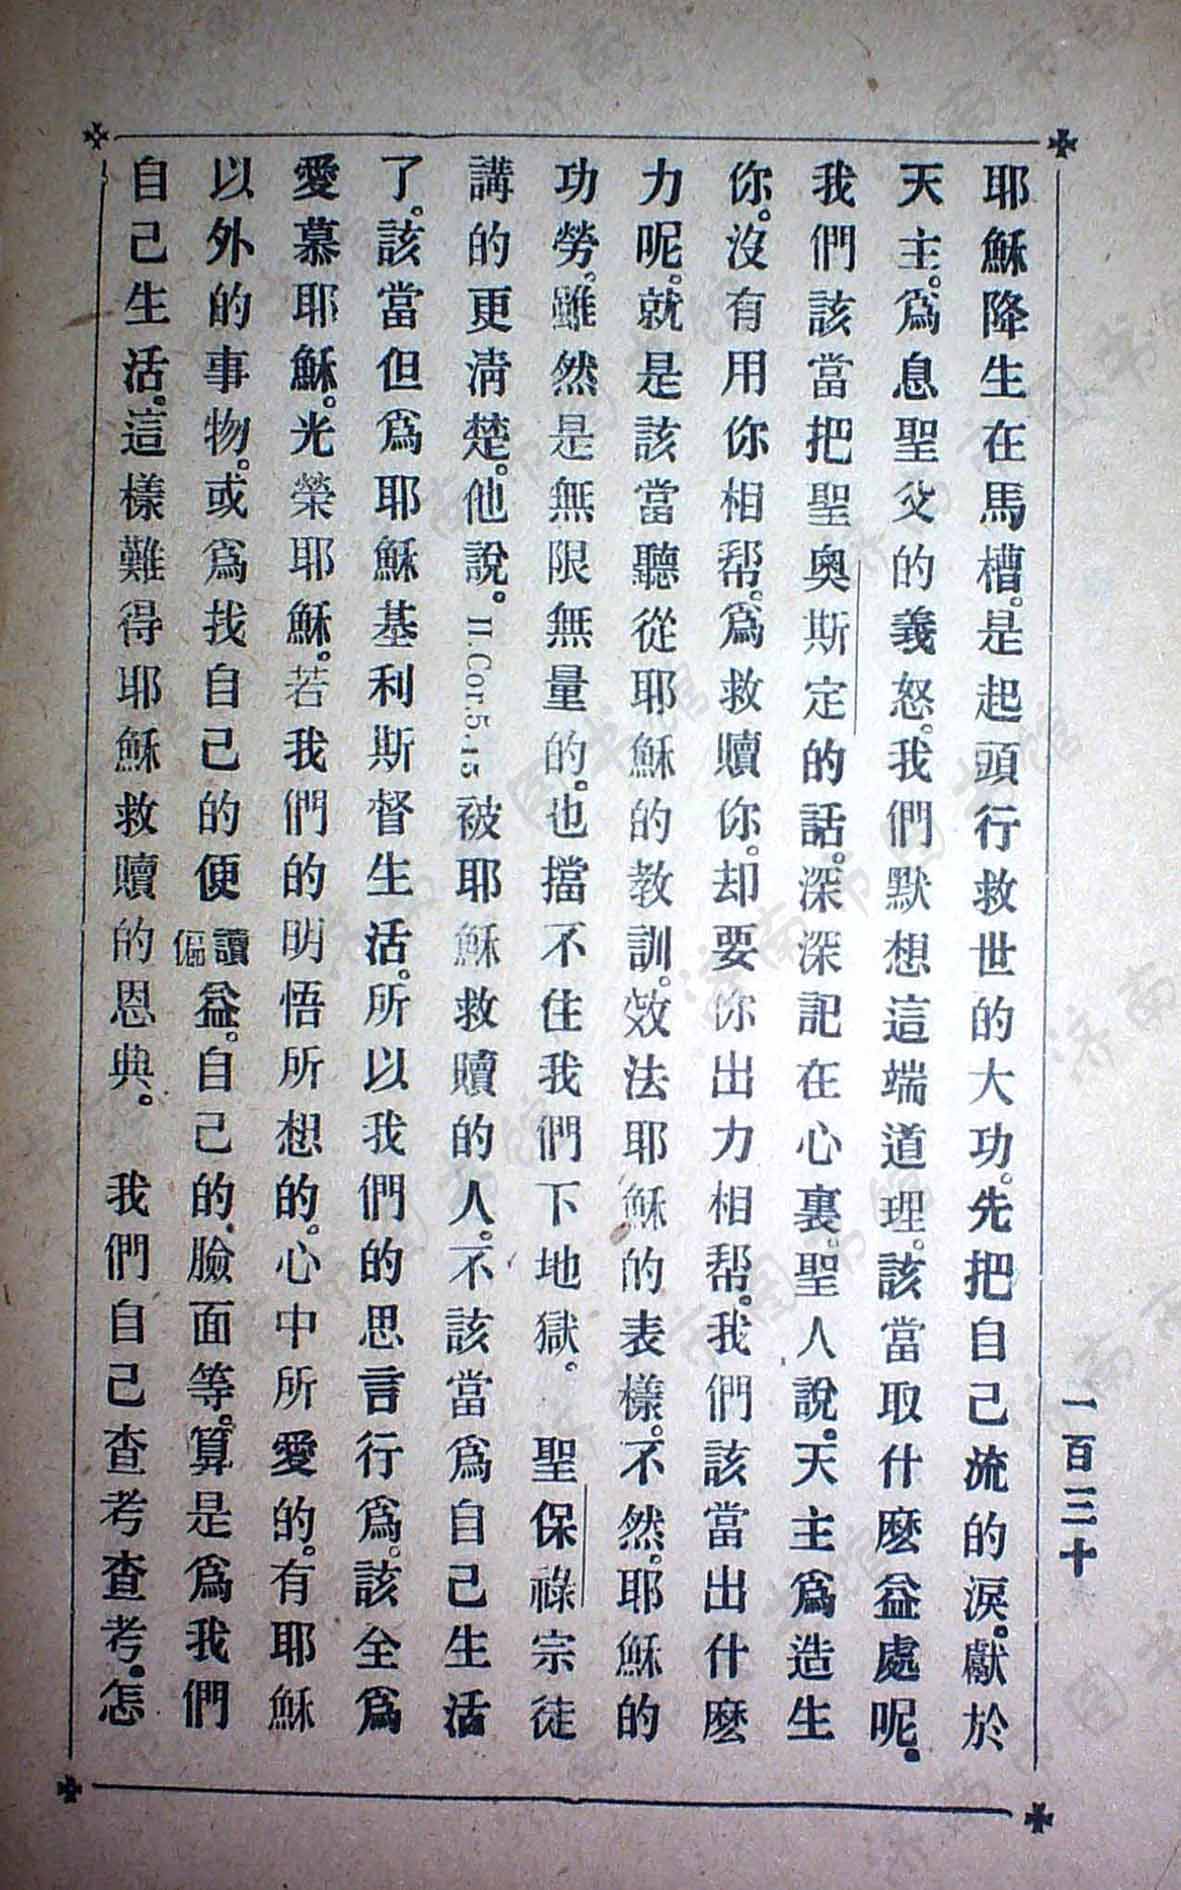 耶穌降生在馬槽。是起頭行救世的大功。先把自己流的淚。獻於
天主。爲息聖父的義怒。我們默想這端道理。該當取什麽益處呢。
我們該當把聖奧斯定的話。深深記在心裏。聖人說。天主爲造生
你。沒有用你相帮。爲救贖你。却要你出力相帮。我們該當出什麽
力呢。就是該當聽從耶穌的教訓。效法耶穌的表樣。不然。耶穌的
功勞。雖然是無限無量的。也擋不住我們下地獄。 聖保祿宗徒
講的更清楚。他說。II.Cor.5-15被耶穌救贖的人。不該當爲自己生活
了。該當但爲耶穌基利斯督生活。所以我們的思言行爲。該全爲
愛慕耶穌。光榮耶穌。若我們的明悟所想的。心中所愛的。有耶穌
以外的事物。或爲找自己的便讀偏益。自己的。臉面等。算是爲我們
自己生活。這樣難得耶穌救贖的恩典。 我們自己查考查考。怎
一百三十
济南市图书馆